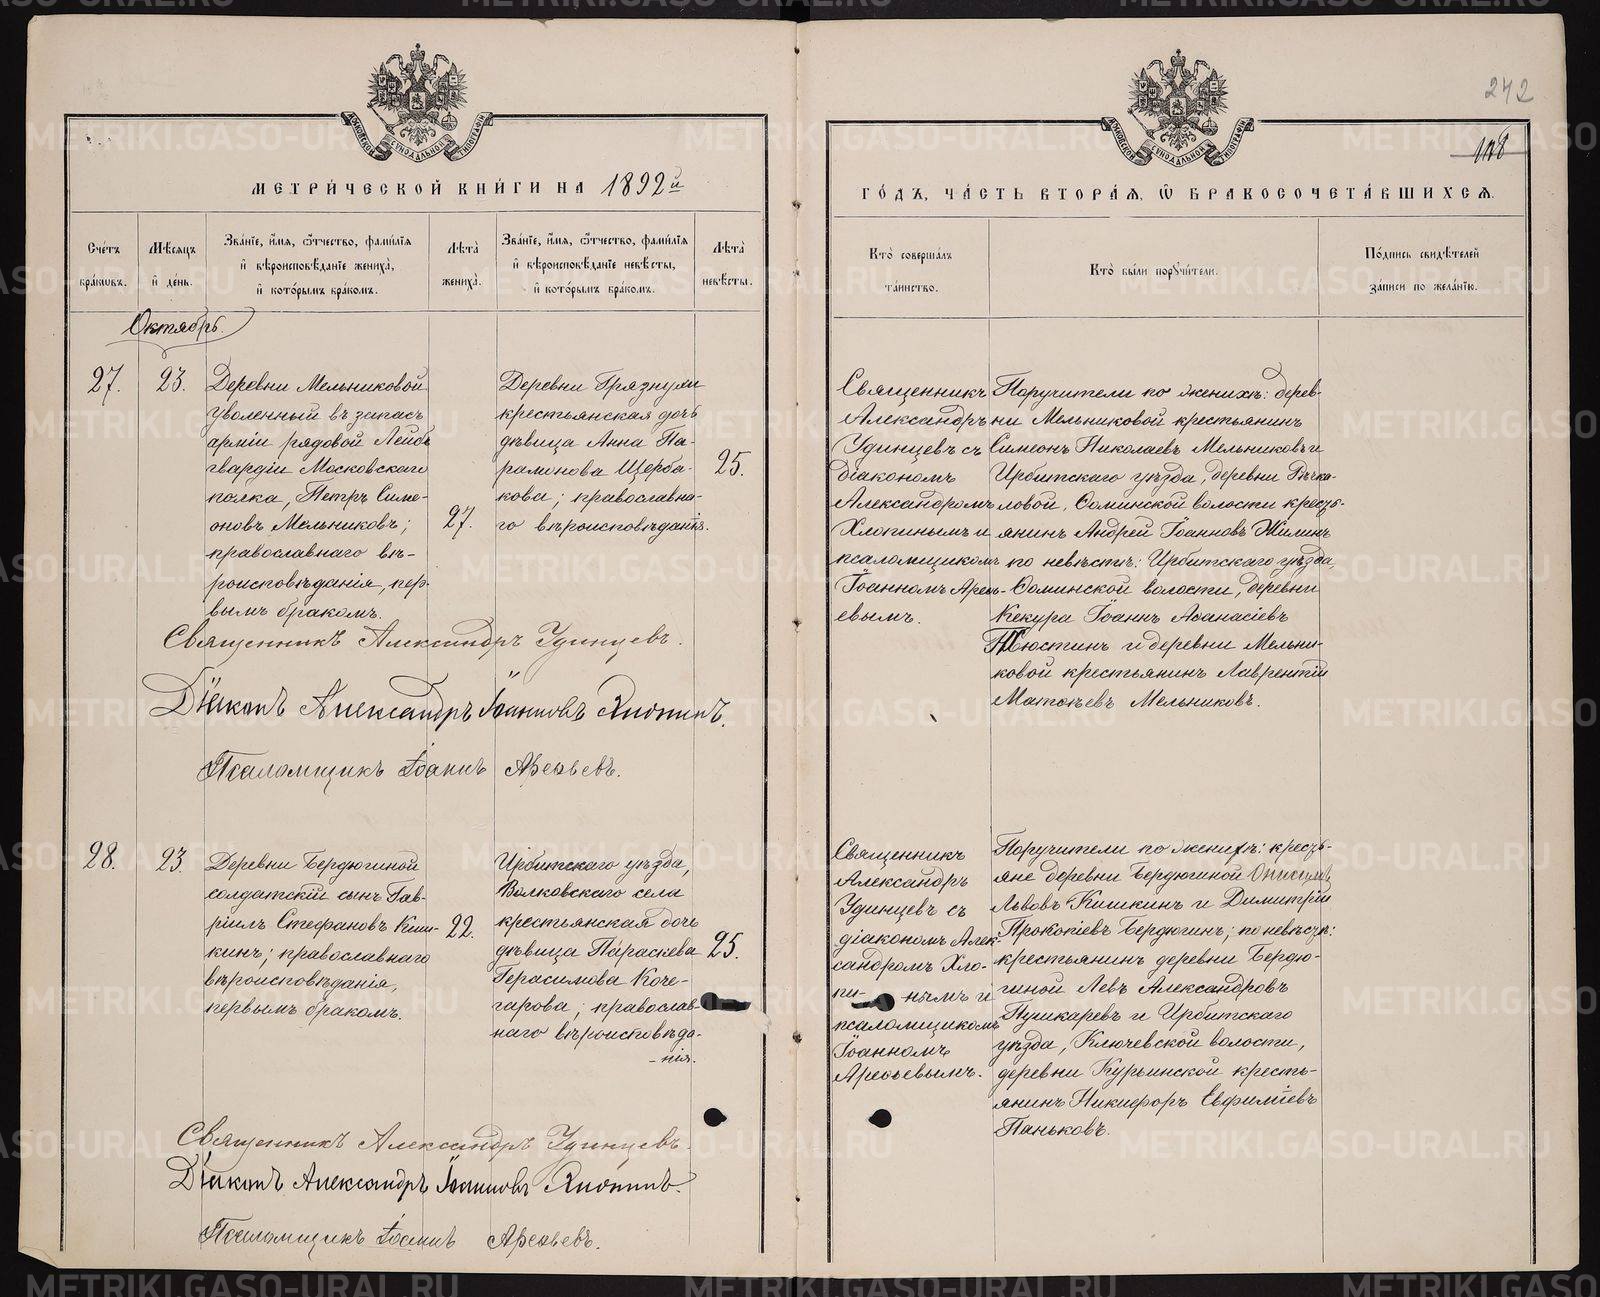 242
118
МЕТРИ́ЧЕСКОЙ КНИ́ГИ НА 1892й
ГО́ДЪ, ЧА́СТЬ ВТОРА́Я, Ѿ БРАКОСОЧЕТА́ВШИХСЯ.
Сче́тъ бра́ковъ.
Мѣ́сяцъ и҆ де́нь.
Зва́нїе, и҆́мя, ѻ҆́тчество, фами́лїя
и҆ вѣроисповѣ́данїе жениха̀,
и҆ кото́рымъ бра́комъ.
Лѣта̀ жениха̀.
Зва́нїе, и҆́мя, ѻ҆́тчество, фами́лїя
и҆ вѣроисповѣ́данїе невѣ́сты,
и҆ кото́рымъ бра́комъ.
Лѣта̀ невѣ́сты.
Кто̀ соверша́лъ та́инство.
Кто̀ бы́ли пору́чители.
По́дпись свидѣ́телей за́писи по жела́нїю.
Октябрь.
27.
23.
Деревни Мельниковой
уволенный въ запасъ
арміи рядовой Лейбъ
гвардіи Московскаго
полка, Петръ Симе-
оновъ Мельниковъ;
православнаго вѣ-
роисповѣданія, пер-
вымъ бракомъ.
27.
Деревни Грязнухи
крестьянская дочь
дѣвица Анна Па-
рамонова Щерба-
кова; православна-
го вѣроисповѣданія.
25.
Священникъ
Александръ
Удинцевъ съ
діакономъ
Александромъ
Хлопинымъ и
псаломщикомъ
Іоанномъ Арефь-
евымъ.
Поручители по женихѣ: дерев-
ни Мельниковой крестьянинъ
Симеонъ Николаевъ Мельниковъ и
Ирбитскаго уѣзда, деревни Рѣчка-
ловой, Ѳоминской волости кресть-
янинъ Андрей Іоанновъ Жилинъ
по невѣстѣ: Ирбитскаго уѣзда,
Ѳоминской волости, деревни
Кекура Іоаннъ Аѳанасіевъ
Тюстинъ и деревни Мельни-
ковой крестьянинъ Лаврентій
Матѳѣевъ Мельниковъ.
Священникъ Александръ Удинцевъ.
Діаконъ Александръ Іоанновъ Хлопинъ.
Псаломщикъ Іоаннъ Арефьевъ.
28.
23.
Деревни Бердюгиной
солдатскій сынъ Гав-
ріилъ Стефановъ Киш-
кинъ; православнаго
вѣроисповѣданія,
первымъ бракомъ.
22.
Ирбитскаго уѣзда,
Волковскаго села
крестьянская дочь
дѣвица Параскева
Герасимова Коче-
гарова; православ-
наго вѣроисповѣда-
-нія.
25.
Священникъ
Александръ
Удинцевъ съ
діакономъ Алек-
сандромъ Хло-
пи- нымъ и
псаломщикомъ
Іоанномъ
Арефьевымъ.
Поручители по женихѣ: кресть-
яне деревни Бердюгиной
Львовъ Кишкинъ и Димитрій
Прокопіевъ Бердюгинъ; по невѣстѣ:
крестьянинъ деревни Бердю-
гиной Левъ Александровъ
Пушкаревъ и Ирбитскаго
уѣзда, Ключевской волости,
деревни Курьинской кресть-
янинъ Никифоръ Евфиміевъ
Паньковъ.
Священникъ Александръ Удинцевъ.
Діаконъ Александръ Іоанновъ Хлопинъ.
Псаломщикъ Іоаннъ Арефьевъ.